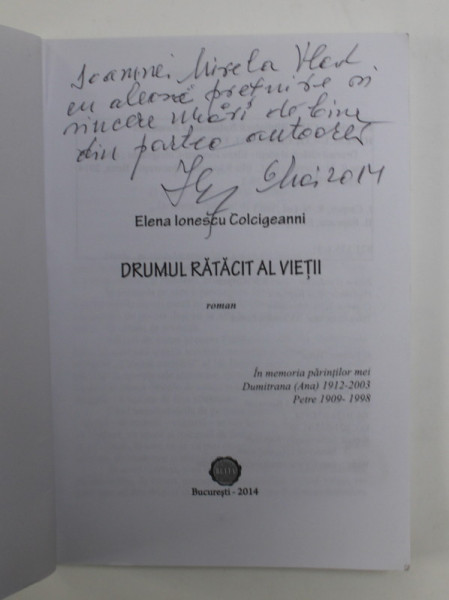 Doamnei Mirela Vlad
cu aleasă prețuire și
sincere urări de bine
din partea autoarei
6 Mai 2014
Elena Ionescu Colcigeanni
DRUMUL RĂTĂCIT AL VIEȚII
roman
În memoria părinților mei
Dumitrana (Ana) 1912-2003
Petre 1909- 1998
București - 2014